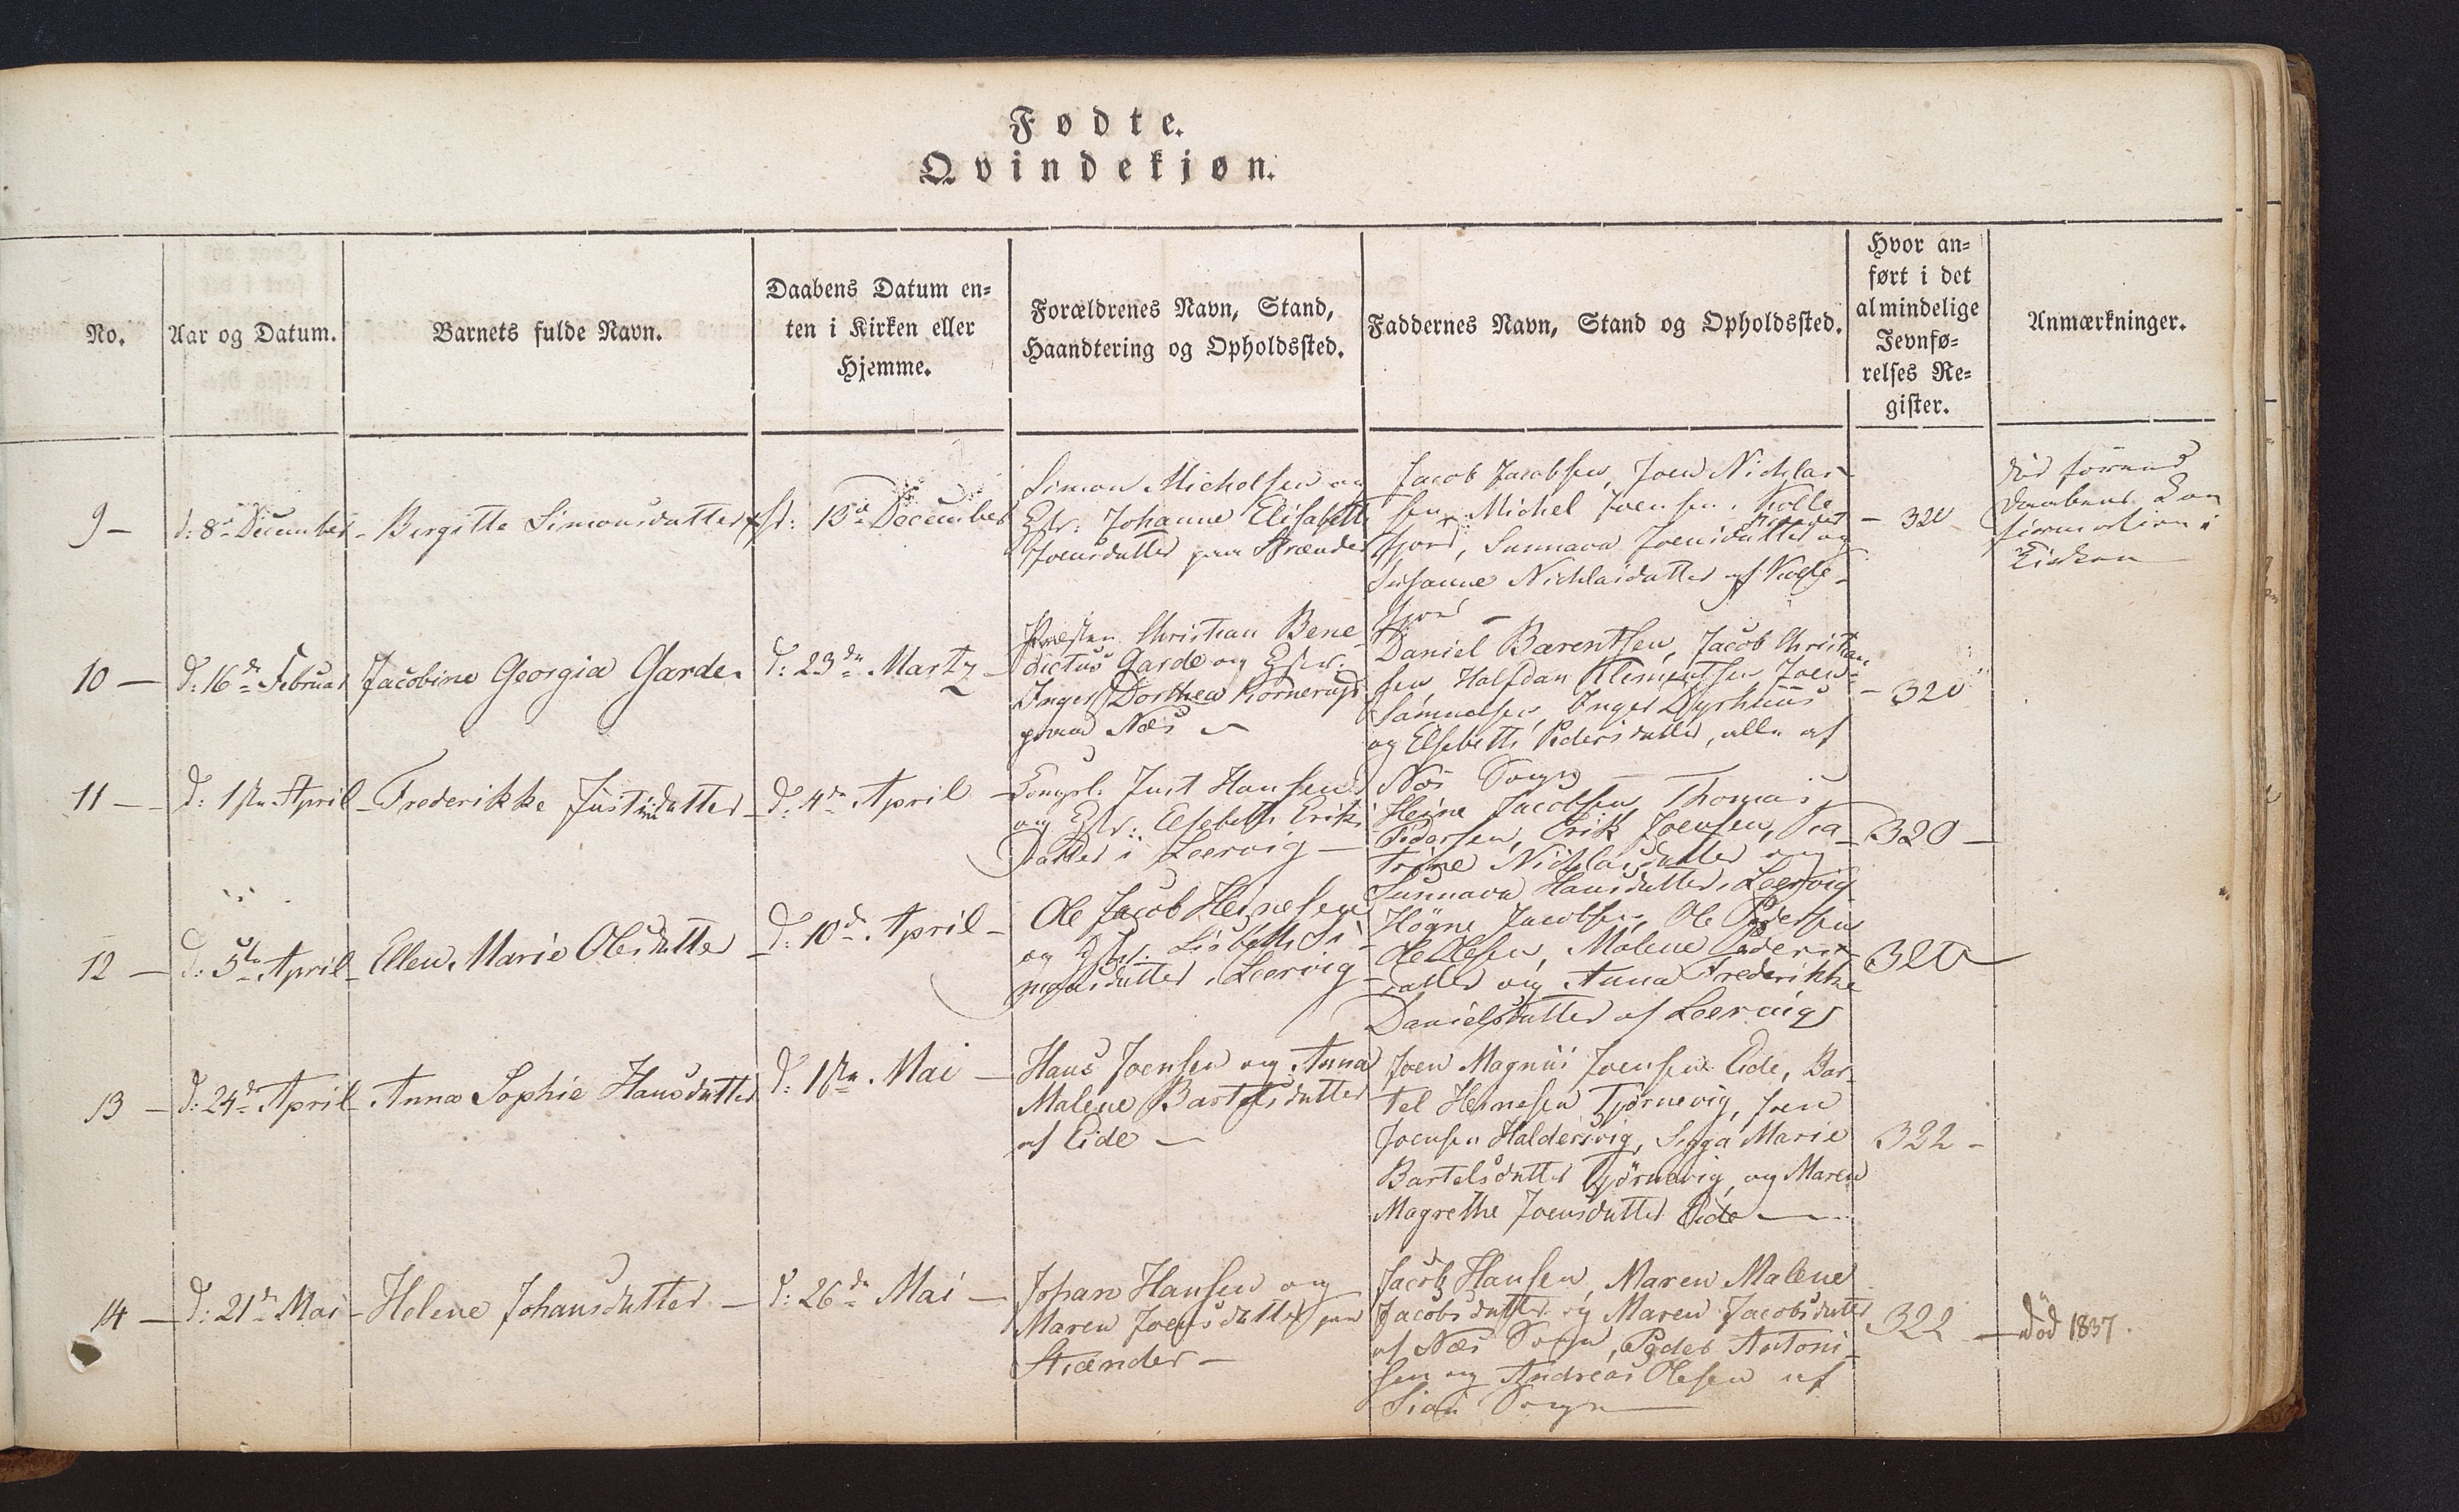 Fødte.
Qvindekjøn.
No.
Aar og Datum.
Barnets fulde Navn.
Daabens Datum en=
ten i Kirken eller
Hjemme.
Forældrenes Navn, Stand,
Haandtering og Opholdssted.
Faddernes Navn, Stand og Opholdssted.
Hvor an=
ført i det
almindelige
Jevnfø=
relses Re=
gister.
Anmærkninger.
9 —
d: 8de December
Birgitte Simonsdatter
d: 13de December
Simon Michelsen og
Hstr: Johanne Elisabeth
Joensdatter paa Strænder
Jacob Jacobsen, Joen Nichlas
sen, Michel Joensen, Kolle
fjord, Sunnava Joensdatter og
Susanne Nichlasdatter af Kolle-
fjord —
— 320
Daabens Con
firmation i
Kirken
10 —
d: 16de Februar
Jacobine Georgia Garde.
d: 23de Martz
Præsten Christian Bene
dictus Garde og Hstr.
Inger Dorthea Kornerup
paa Næs
Daniel Barentsen, Jacob Christian
sen, Halfdan Klementsen Joen
Samuelsen, Inger Dyrhuus
og Elsebeth Pedersdatter, alle af
Næs Sogn —
— 320
11 —
d: 1ste April
Frederikke Justsdatter
d: 4de April
Just Hansen
og Hstr: Elsebeth Eriks
Datter i Leervig —
Heine Jacobsen Thomas
Pedersen, Erik Joensen, Ca
trine Nichlasdatter og
Sunnava Hansdatter, Leervig
320 —
12 —
d: 5te April
Ellen Marie Olesdatter
d: 10de April —
Ole Jacob Heinesen
og Hstr. Lisbeth Si
monsdatter, Leervig
Högne Jacobsen, Ole Pedersen
Ole Olesen, Malene Peders
datter og Anna Frederikke
Danielsdatter af Leervig
320 —
13 —
d: 24de April
Anna Sophie Hansdatter
d: 1ste Mai —
Hans Joensen og Anna
Malene Bartelsdatter
af Eide —
Joen Magnus Joensen Eide, Bar
tel Heinesen Tjörnevig, Joen
Joensen Haldersvig, Marie
Bartelsdatter Tjörnevig, og Maren
Magrethe Joensdatter Eide —
322 —
14 —
d: 21de Mai
Helene Johansdatter —
d: 26de Mai —
Johan Hansen og
Maren Joensdatter paa
Strænder —
Jacob Hansen, Maren Malene
Jacobsdatter og Maren Jacobsdatter
af Næs Sogn, Peder Antoni
sen og Andreas Olesen af
Siov Sogn —
322
— död 1837.